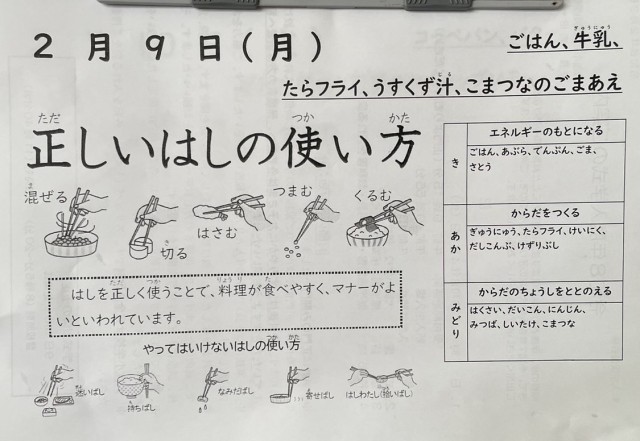 2月9日(月)
ごはん、牛乳、
ぎゅうにゅう
たらフライ、うすくず汁、こまつなのごまあえ
じる
正しいはしの使い方
ただ
つか
かた
混ぜる
ま
切る
き
はさむ
つまむ
くるむ
はしを正しく使うことで、料理が食べやすく、マナーがよ
ただ
つか
りょうり
た
いといわれています。
やってはいけないはしの使い方
つか
かた
迷いばし
まよ
持ちばし
も
なみだばし
寄せばし
よ
はしわたし(拾いばし)
ひろ
き
エネルギーのもとになる
ごはん、あぶら、でんぷん、ごま、
さとう
あか
からだをつくる
ぎゅうにゅう、たらフライ、けいにく、
だしこんぶ、けずりぶし
みどり
からだのちょうしをととのえる
はくさい、だいこん、にんじん、
みつば、しいたけ、こまつな